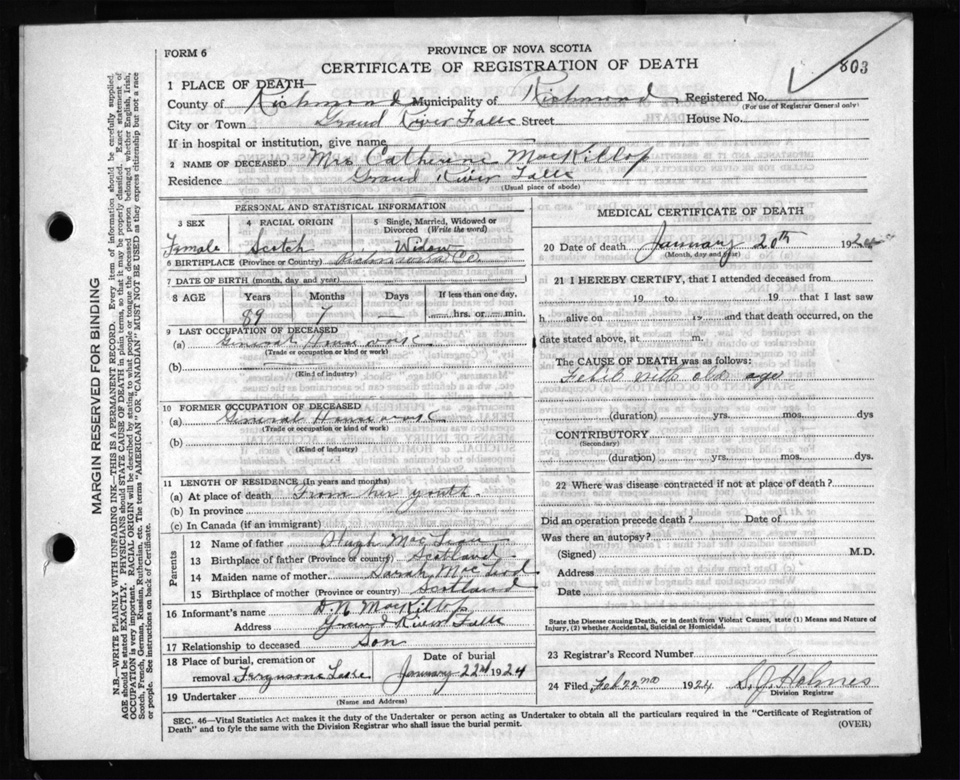 FORM 6
PROVINCE OF NOVA SCOTIA
CERTIFICATE OF REGISTRATION OF DEATH
803
1 PLACE OF DEATH
County of Richmond Municipality of Richmond Registered No.
(For use of Registrar General only)
City or Town Grand River Falls Street House No.
If in hospital or institution, give name
2 NAME OF DECEASED Mrs Catherine MacKillop
Residence Grand River Falls
(Usual place of abode)
PERSONAL AND STATISTICAL INFORMATION
3 SEX 4 RACIAL ORIGIN 5 Single, Married, Widowed or Divorced (Write the word)
Female Scotch Widow
6 BIRTHPLACE (Province or Country) Richmond Co.
7 DATE OF BIRTH (month, day, and year)
8 AGE Years Months Days If less than one day,
89 7 — hrs. or min.
9 LAST OCCUPATION OF DECEASED
(a) General House work
(Trade or occupation or kind or work)
(b)
(Kind of industry)
10 FORMER OCCUPATION OF DECEASED
(a) General House work
(Trade or occupation or kind or work)
(b)
(Kind of industry)
11 LENGTH OF RESIDENCE (In years and months)
(a) At place of death From her youth.
(b) In province
(c) In Canada (if an immigrant)
Parents
12 Name of father Hugh Mac
13 Birthplace of father (Province or country) Scotland
14 Maiden name of mother Sarah MacLeod
15 Birthplace of mother (Province or country) Scotland
16 Informant's name D. N. MacKillop
Address Grand River Falls
17 Relationship to deceased Son
18 Place of burial, cremation or removal Fergusons Lake Date of burial January 22nd 1924
19 Undertaker
(Name and Address)
MEDICAL CERTIFICATE OF DEATH
20 Date of death January 20th 192
(Month, day and year)
21 I HEREBY CERTIFY, that I attended deceased from
19 to 19 that I last saw
h alive on 19 and that death occurred, on the
date stated above, at m.
The CAUSE OF DEATH was as follows:
with old age
(duration) yrs. mos. dys
CONTRIBUTORY
(Secondary)
(duration) yrs. mos. dys
22 Where was disease contracted if not at place of death?
Did an operation precede death? Date of
Was there an autopsy?
(Signed) M.D.
Address
Date
State the Disease Causing Death, or in death from Violent Causes, state (1) Means and Nature of Injury, (2) whether Accidental, Suicidal or Homicidal.
23 Registrar's Record Number
24 Filed Feb 22nd 1924 S. J. Holmes
Division Registrar
SEC. 46—Vital Statistics Act makes it the duty of the Undertaker or person acting as Undertaker to obtain all the particulars required in the "Certificate of Registration of
Death" and to fyle the same with the Division Registrar who shall issue the burial permit.
(OVER)
MARGIN RESERVED FOR BINDING
N.B.—WRITE PLAINLY WITH UNFADING INK—THIS IS A PERMANENT RECORD. Every item of information should be carefully supplied.
AGE should be stated EXACTLY. PHYSICIANS should STATE CAUSE OF DEATH in plain terms, so that it may be properly classified. Exact statement of
OCCUPATION is very important. RACIAL ORIGIN will be described by stating to what people or tongue the deceased person belonged whether English, Irish,
Scotch, French, German, Russian, Ruthenian, etc. The terms "AMERICAN" OR "CANADIAN" MUST NOT BE USED as they express citizenship but not a race
or people. See instructions on back of Certificate.